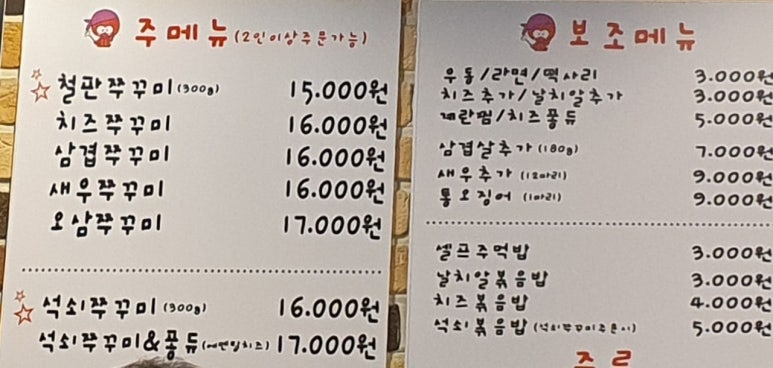 주메뉴 (2인이상주문가능)
철판쭈꾸미 (300g) 15.000원
치즈쭈꾸미 16.000원
삼겹쭈꾸미 16.000원
새우쭈꾸미 16.000원
오삼쭈꾸미 17.000원
석쇠쭈꾸미 (300g) 16.000원
석쇠쭈꾸미&퐁듀 (에멘탈치즈) 17.000원
보조메뉴
우동/라면/떡사리 3.000원
치즈추가/날치알추가 3.000원
계란찜/치즈퐁듀 5.000원
삼겹살추가 (180g) 7.000원
새우추가 (12마리) 9.000원
통오징어 (1마리) 9.000원
셀프주먹밥 3.000원
날치알볶음밥 3.000원
치즈볶음밥 4.000원
석쇠볶음밥 (석쇠쭈꾸미주문시) 5.000원
주류